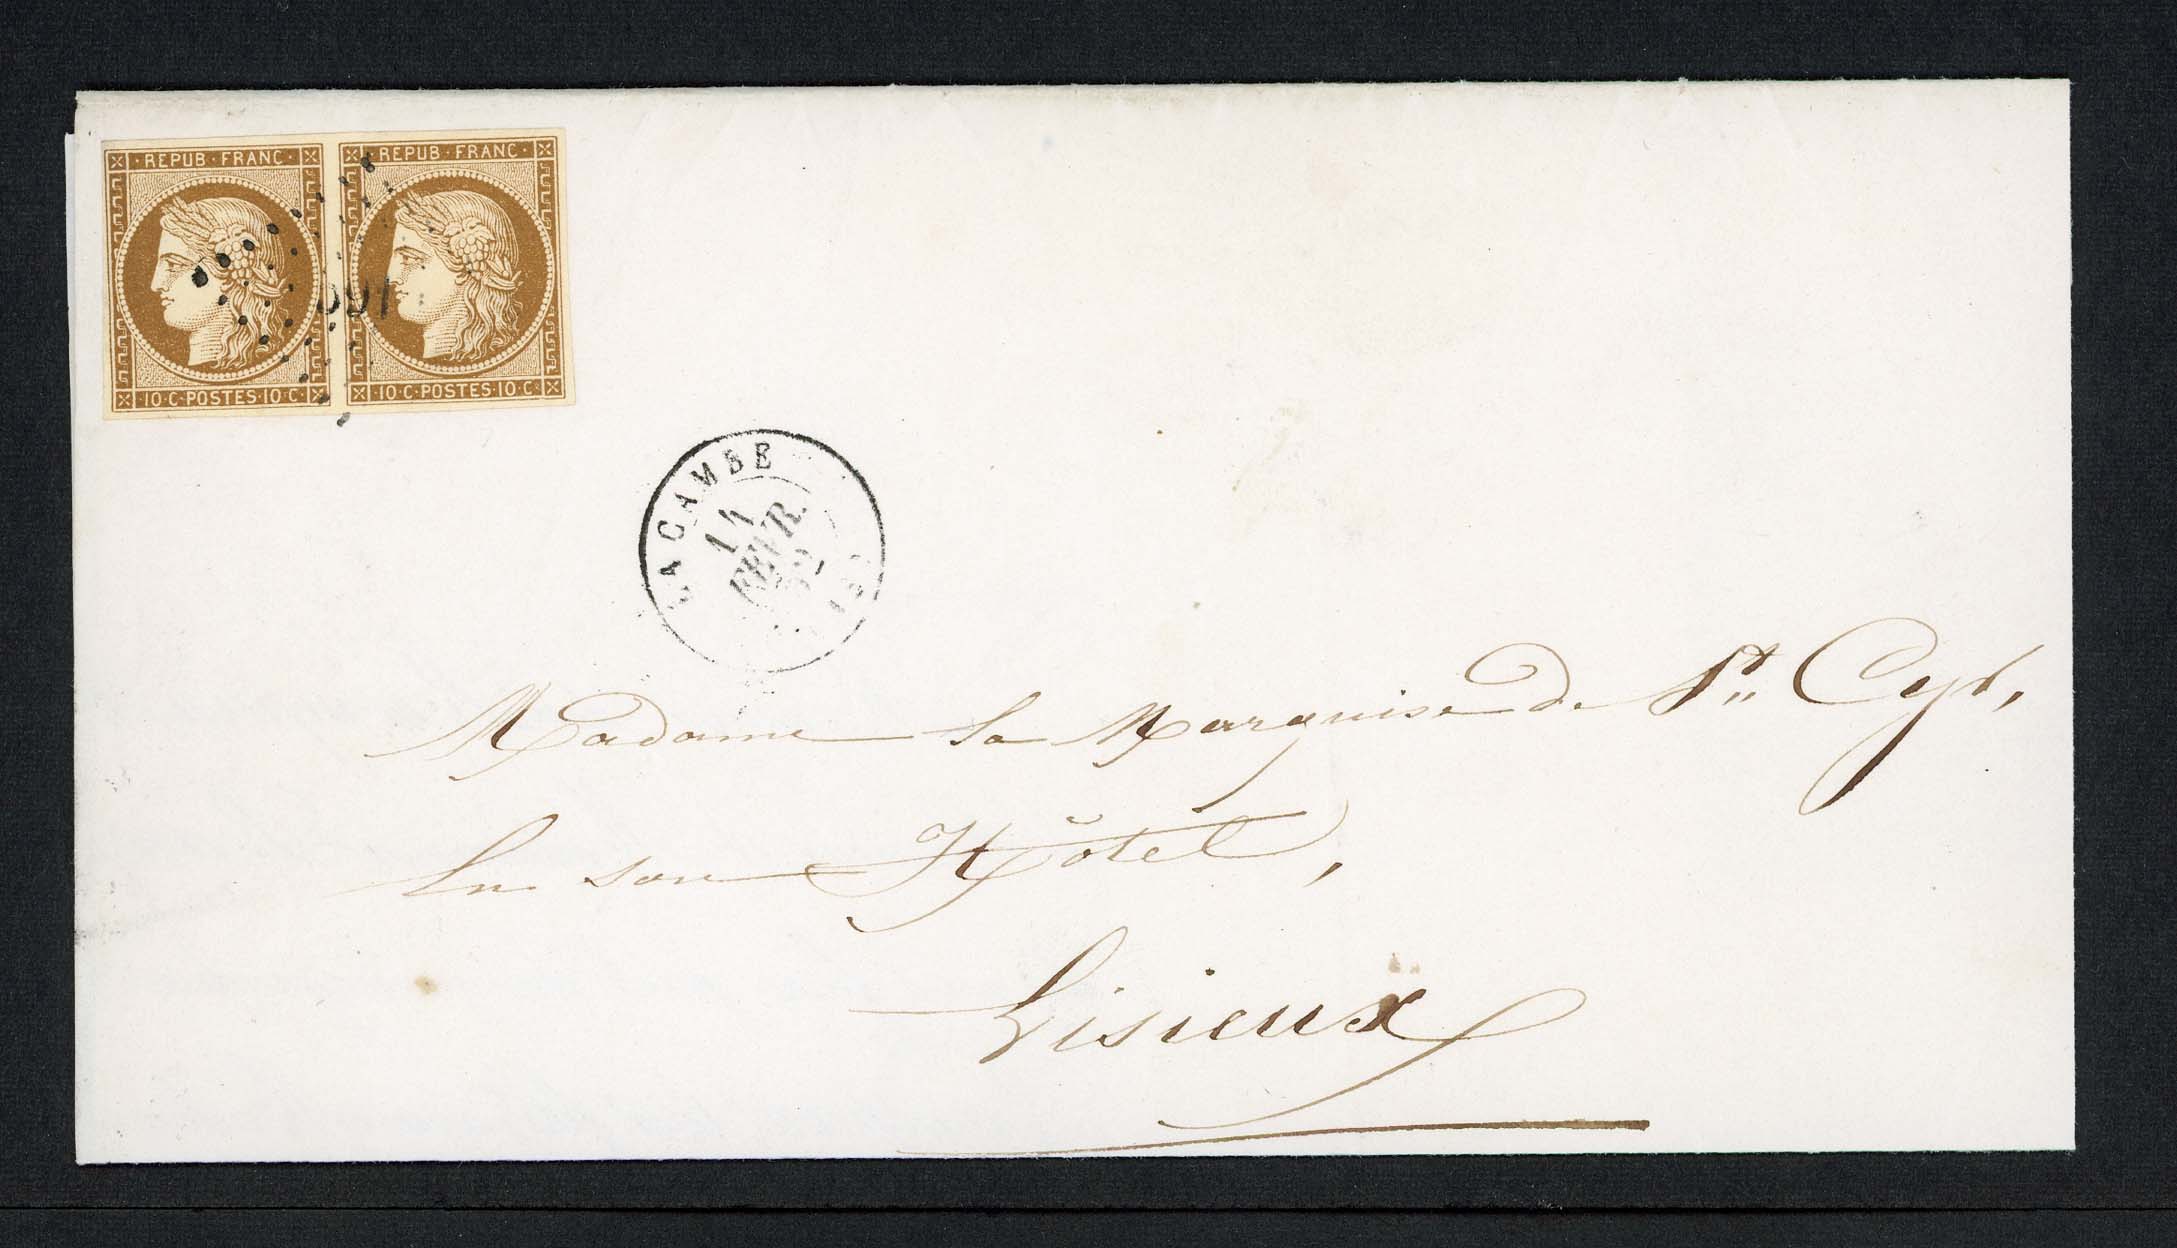 REPUB · FRANC · REPUB · FRANC ·
10 · C · POSTES · 10 · C · 10 · C · POSTES · 10 · C ·
LA CAMBE
14
FEVR.
52
Madame la Marquise de St. Cyr,
En son Hôtel,
Lisieux